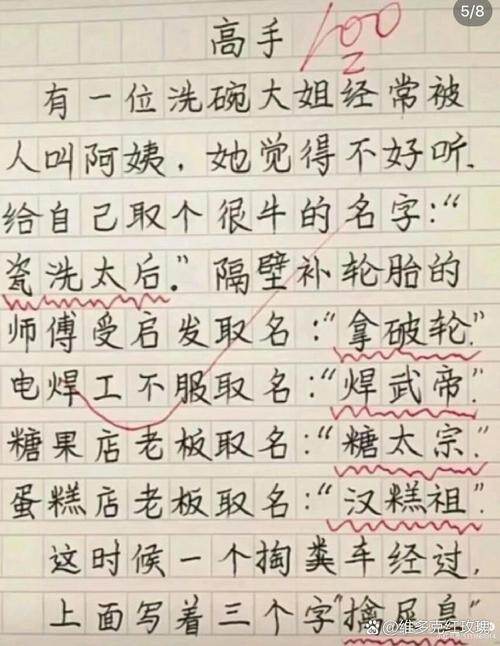 5/8
高手
100
有一位洗碗大姐经常被
人叫阿姨，她觉得不好听.
给自己取个很牛的名字:“
瓷洗太后.”隔壁补轮胎的
师傅受启发取名:“拿破轮”.
电焊工不服取名:“焊武帝”.
糖果店老板取名:“糖太宗”.
蛋糕店老板取名:“汉糕祖”.
这时候一个掏粪车经过,
上面写着三个字“擒屎皇
@维多克红玫瑰